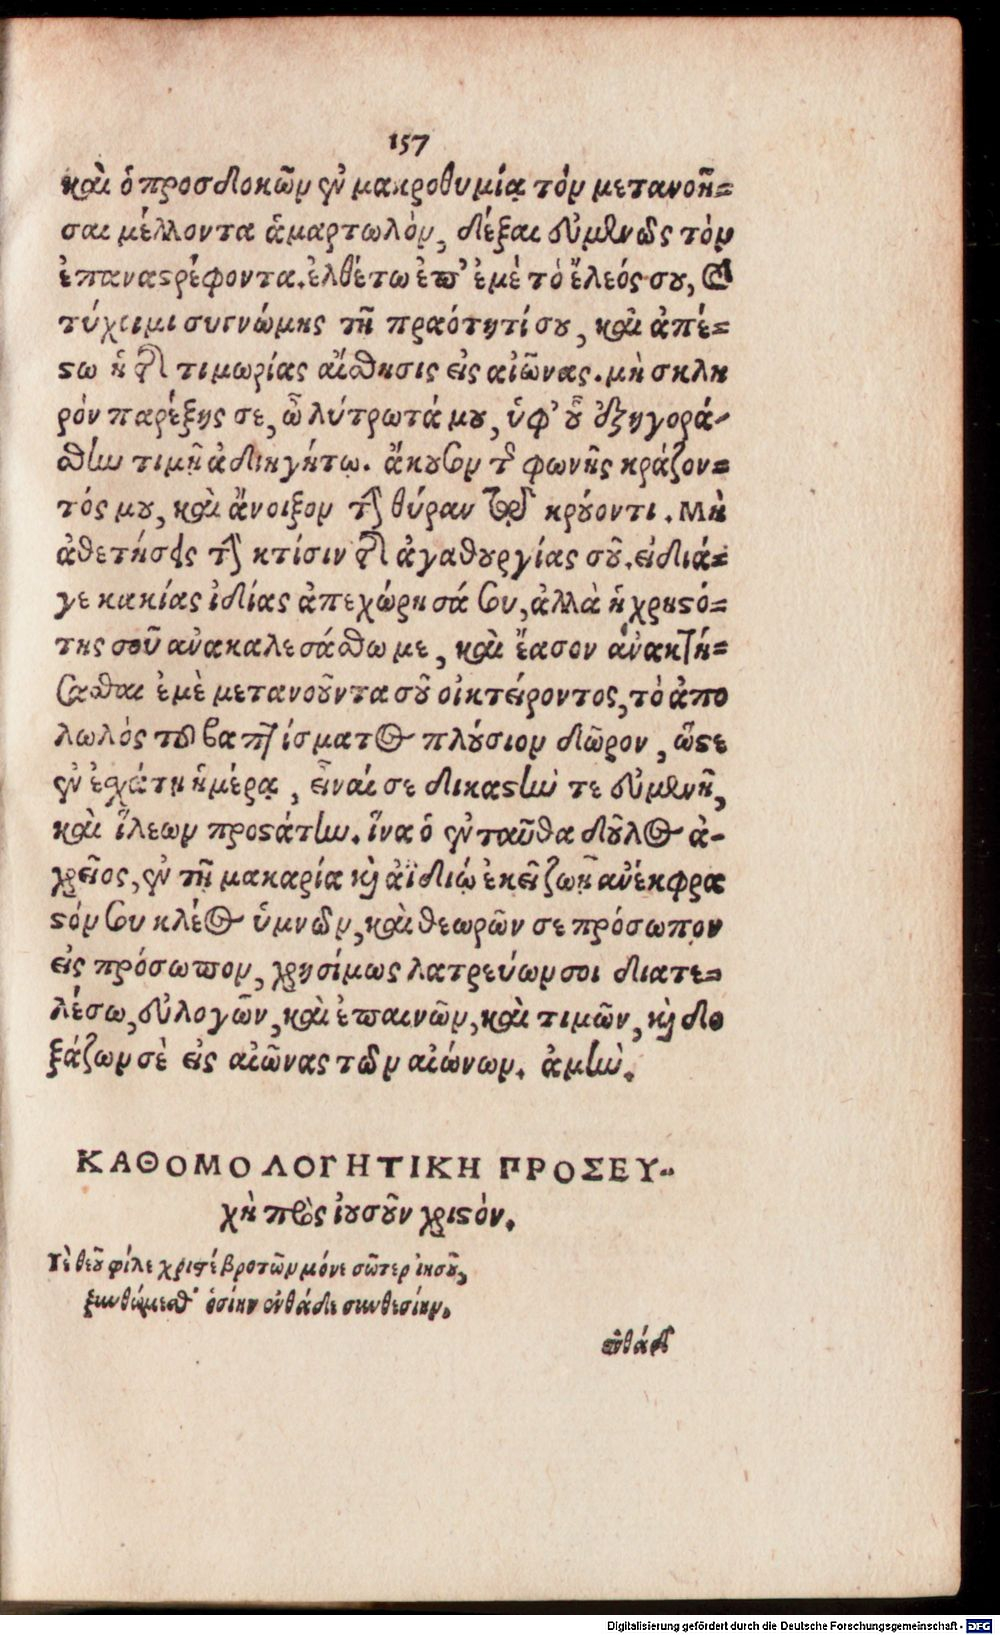 157
καὶ ὁ προσδιοκῶν ἐν μακροθυμίᾳ τὸν μετανοῆ=
σαι μέλλοντα ἁμαρτωλὸν, δέξαι εὐμενῶς τὸν
ἐπαναστρέφοντα. ἐλθέτω ἐπ' ἐμὲ τὸ ἔλεός σου, καὶ
τύχοιμι συγνώμης τῇ πραότητί σου, καὶ ἀπέ=
στω ἡ τῆς τιμωρίας αἴσθησις εἰς αἰῶνας. μὴ σκλη
ρὸν παρέξῃς σε, ὦ λύτρωτά μου, ὑφ' οὗ ἐξηγορά-
σθην τιμῇ ἀδιηγήτῳ. ἄκουσον τῆς φωνῆς κράζον=
τός μου, καὶ ἄνοιξον τὴν θύραν τῷ κρούοντι. Μὴ
ἀθετήσῃς τὴν κτίσιν τῆς ἀγαθουργίας σοῦ. εἰ διά=
γε κακίας ἰδίας ἀπεχώρησά σου, ἀλλὰ ἡ χρηστό=
της σοῦ ἀνακαλεσάσθω με, καὶ ἔασον ἀνακτή=
σασθαι ἐμὲ μετανοῦντα σοῦ οἰκτείροντος, τὸ ἀπο
λωλὸς τοῦ βαπτίσματος πλούσιον δῶρον, ὥστε
ἐν ἐσχάτῃ ἡμέρᾳ, εἶναί σε δικαστὴν τε εὐμενῆ,
καὶ ἵλεων προστάτην. ἵνα ὁ ἐνταῦθα δοῦλος ἀ-
χρεῖος, ἐν τῇ μακαρίᾳ καὶ ἀϊδίῳ ἐκεῖ ζωῇ ἀνέκφρα
στόν σου κλέος ὑμνῶν, καὶ θεωρῶν σε πρόσωπον
εἰς πρόσωπον, χρησίμως λατρεύων σοι διατε=
λέσω, εὐλογῶν, καὶ ἐπαινῶν, καὶ τιμῶν, καὶ δο
ξάζων σὲ εἰς αἰῶνας τῶν αἰώνων. ἀμὴν.
ΚΑΘΟΜΟΛΟΓΗΤΙΚΗ ΠΡΟΣΕΥ-
χὴ πρὸς ἰουσοῦν χριστόν.
Υἱὲ θεοῦ φίλε χριστέ βροτῶν μόνε σῶτερ ἰησοῦ,
ξυνθώμεσθ' ὁσίην ἐνθάδε συνθεσίην.
ἐνθάδε